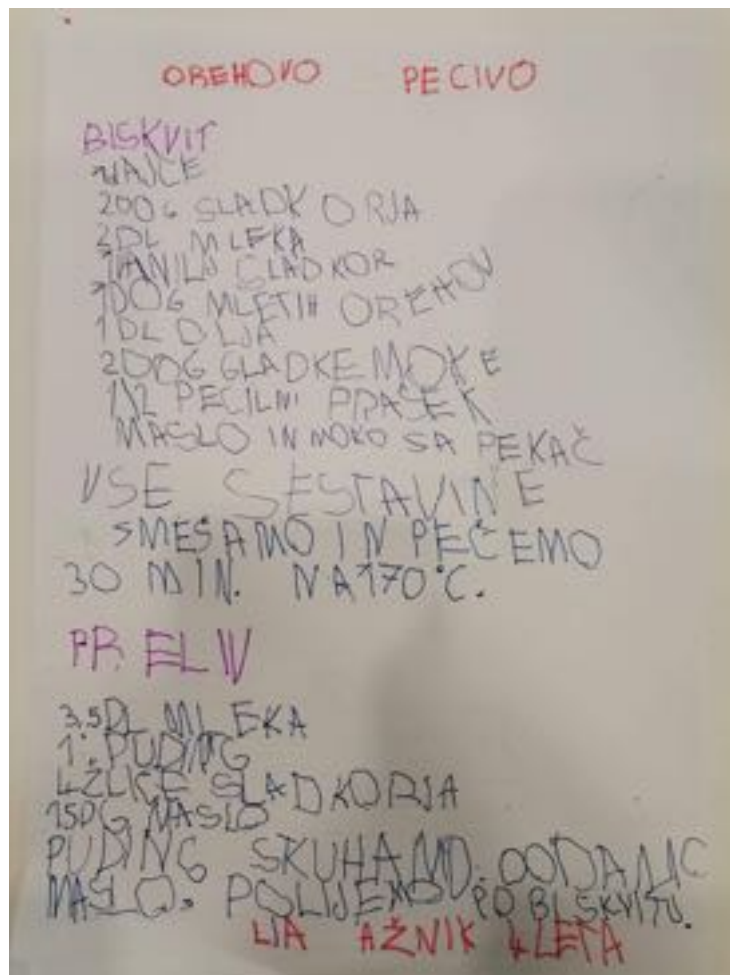 OREHOVO PECIVO
BISKVIT
JAJCE
200G SLADKORJA
2DL MLEKA
VANILIJ SLADKOR
100G MLETIH OREHOV
1DL OLJA
200G GLADKE MOKE
1/2 PECILNI PRAŠEK
MASLO IN MOKO SA PEKAČ
VSE SESTAVINE
SMEŠAMO IN PEČEMO
30 MIN. NA 170°C.
PRELIV
3,5DL MLEKA
1. PUDING
4 ŽLICE SLADKORJA
150G MASLO
PUDING SKUHAMO. DODAMO
MASLO. POLIJEMO PO BISKVITU.
LIA AŽNIK 4 LETA